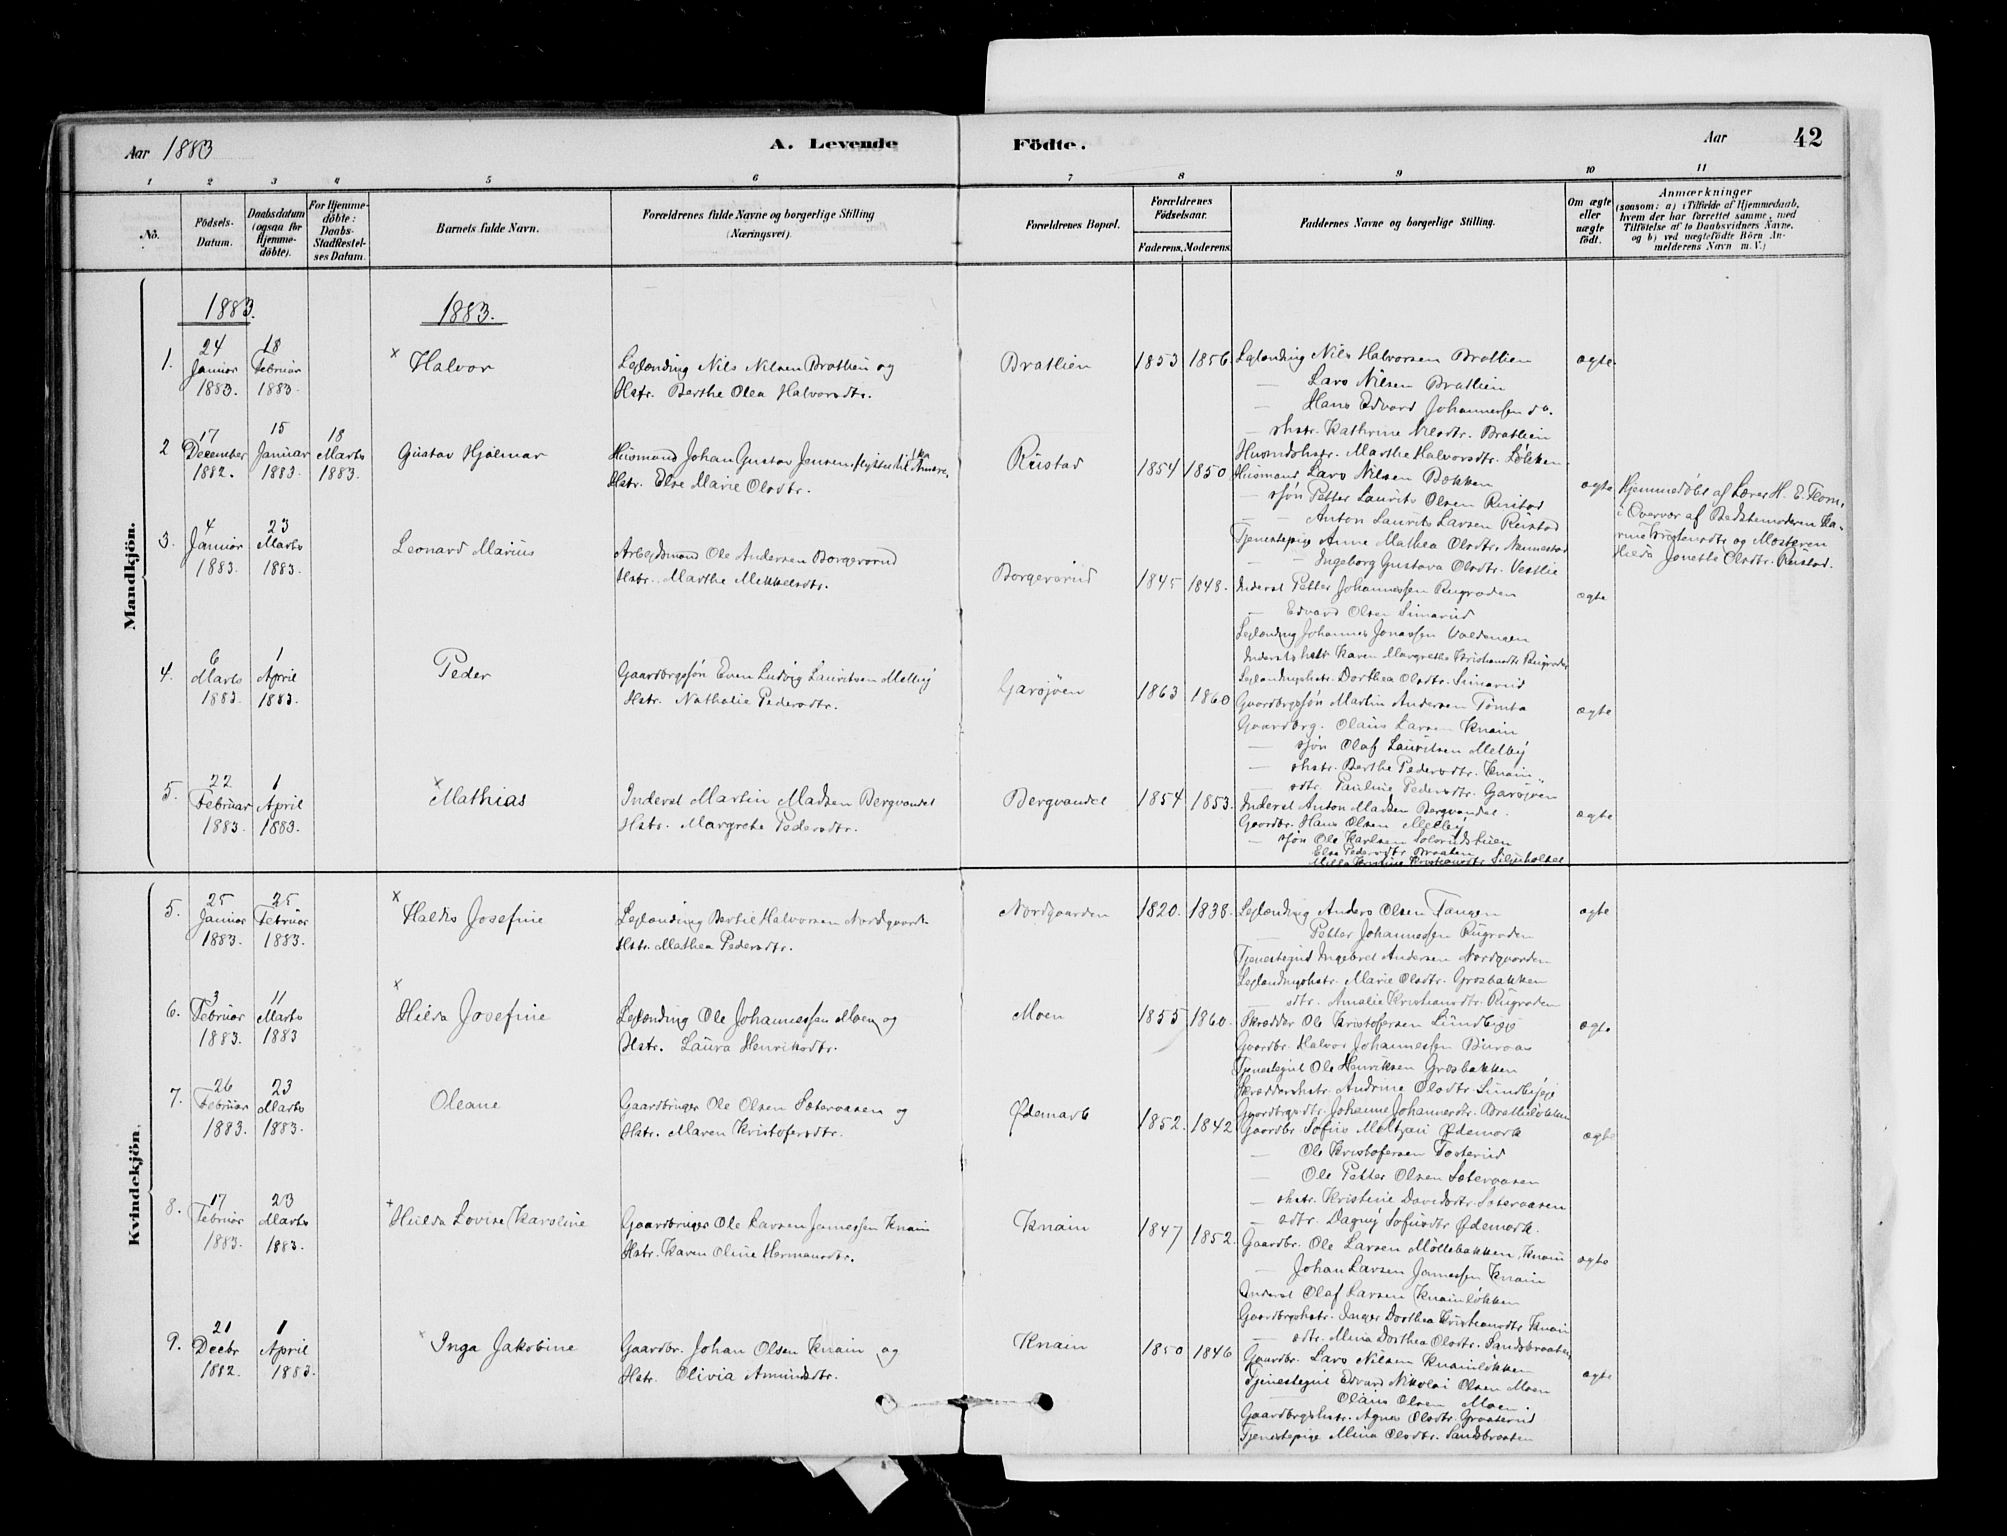 Aar 1883
A. Levende
Födte.
Aar
42
1 2 3 4 5 6 7 8 9 10 11
No.
Födsels-Datum.
Daabsdatum (ogsaa for Hjemmedöbte).
For Hjemmedöbte: Daabs-Stadfestelses Datum.
Barnets fulde Navn.
Forældrenes fulde Navne og borgerlige Stilling (Næringsvei).
Forældrenes Bopæl.
Forældrenes Födselsaar.
Faderens. Moderens.
Faddernes Navne og borgerlige Stilling.
Om ægte eller uægte födt.
Anmærkninger
(saasom: a) i Tilfælde af Hjemmedaab, hvem der har forrettet samme, med Tilföielse af to Daabsvidners Navne, og b) ved uægtefödte Börn Anmelderens Navn m.V.)
Mandkjön.
1883.
1883.
1.
24 Januar 1883.
18 Februar 1883.
× Halvor
Leilending Nils Nilsen Bratlien og
Hstr. Berthe Olea Halvorsdtr.
Bratlien
1853 1856
Leilending Nils Halvorsen Bratlien
— Lars Nilsen Bratlien
— Hans Edvard Johannessen do.
— shstr. Kathrine Nilsdtr. Bratlien
Husmdshstr. Marthe Halvorsdtr. Løkken
ægte
2
17 December 1882.
15 Januar 1883.
18 Marts 1883.
Gustav Hjalmar
Husmand Johan Gustav Jensen
Hstr. Else Marie Olsdtr.
Rustad
1854 1850
Husmand Lars Nilsen Bakken
— sføn Petter Laurits Olsen Rustad
— — Anton Laurits Larsen Rustad
Tjenestepige Anne Mathea Olsdtr. Nannestad
— — Ingeborg Gustava Olsdtr. Vestlie
ægte
Hjemmedøbt af Lærer H. E.
i Overvær af Bedstemoderen Ka-
og Mosteren
Hilda Jonette Olsdtr. Rustad.
3.
4 Januar 1883.
23 Marts 1883.
Leonard Marius
Arbejdsmand Ole Andersen Borgersrud
Hstr. Marthe Mikkelsdtr.
Borgersrud
1845 1848.
Inderst Petter Johannessen Rugraden
— Edvard Olsen Simarud
Leilending Johannes Jonassen
Inderstshstr Karen Margrethe Kristiansdtr Rugraden
Leilendingshstr. Dorthea Olsdtr. Simarud
ægte
4.
6 Marts 1883.
1 April 1883.
Peder
Gaardbrgssøn Even Ludvig Lauritsen Melbÿ
Hstr. Nathalie Pedersdtr.
Garsjøen
1863 1860
Gaardbrgssøn Martin Andersen Tømta
Gaardbrg. Olaus Larsen Knain
— søn Olaf Lauritsen Melbÿ
— shstr. Berthe Pedersdtr. Knain
— sdtr. Pauline Pedersdtr. Garsjøen
ægte
5.
22 Februar 1883.
1 April 1883.
× Mathias
Inderst Martin Madsen Bergvandet
Hstr. Margrete Pedersdtr.
Bergvandet
1854 1853.
Inderst Anton Madsen Bergvandet.
Gaardbr. Hans Olsen Melbÿ
— søn Ole Karlsen
Else Pedersdtr. Braaten
ægte
Kvindekjön.
5.
25 Januar 1883.
25 Februar 1883.
× Haldis Josefine
Leilending Bertil Halvorsen Nordgaarde
Hstr. Mathea Pedersdtr.
Nordgaarden
1820. 1838.
Leilending Anders Olsen Tangen
— Petter Johannessen Rugraden
Tjenestegut Ingebret Andersen Nordgaarden
Leilendingshstr. Marie Olsdtr. Grosbakken
— sdtr. Amalie Kristiansdtr. Rugraden
ægte
6.
3 Februar 1883.
11 Marts 1883
× Hilda Josefine
Leilending Ole Johannessen Moen og
Hstr. Laura Henriksdtr.
Moen
1855 1860.
Skrædder Ole Kristofersen Lundbÿe
Gaardbr. Halvor Johannessen Buraas
Tjenestegut Ole Henriksen Gresbakken
Skreddershstr. Andrine Olsdtr. Lundbÿe
Gaardbrgsdtr. Johanne Johannesdtr. Bratteløkken
ægte
7.
26 Februar 1883.
23 Marts 1883.
Oleane
Gaardbruger Ole Olsen Sæteraasen og
Hstr. Maren Kristofersdtr.
Ødemark
1852. 1842
Gaardbr. Sofus Moltzau Ødemark
— Ole Kristofersen Tosterud
— Ole Petter Olsen Sæteraasen
— shstr. Kristine Davidsdtr. Sæteraasen
— sdtr. Dagnÿ Sofusdtr Ødemark.
ægte
8.
17 Februar 1883.
23 Marts 1883.
× Hulda Lovise Karoline
Gaardbruger Ole Larsen Jonassen Knain
Hstr. Karen Oline Hermansdtr.
Knain
1847 1852.
Gaardbr. Ole Larsen Møllebakken, Knain
— Johan Larsen Jonassen Knain
Inderst Olaf Larsen Knainløkken
Gaardbrgshstr. Inger Dorthea Kristiansdtr Knain
— sdtr. Mina Dorthea Olsdtr. Sandsbraaten
ægte
9.
21 Decbr 1882.
1 April 1883.
× Inga Jakobine
Gaardbr. Johan Olsen Knain og
Hstr. Olivia Amundsdtr.
Knain
1850 1846
Gaardbr. Lars Nilsen Knainløkken
Tjenestegut Edvard Nikolai Olsen Moen
— Olaus Olsen Moen.
Gaardbrgshstr. Agnes Olsdtr. Graaterud
Tjenestepige Mina Olsdtr. Sandsbraaten
ægte